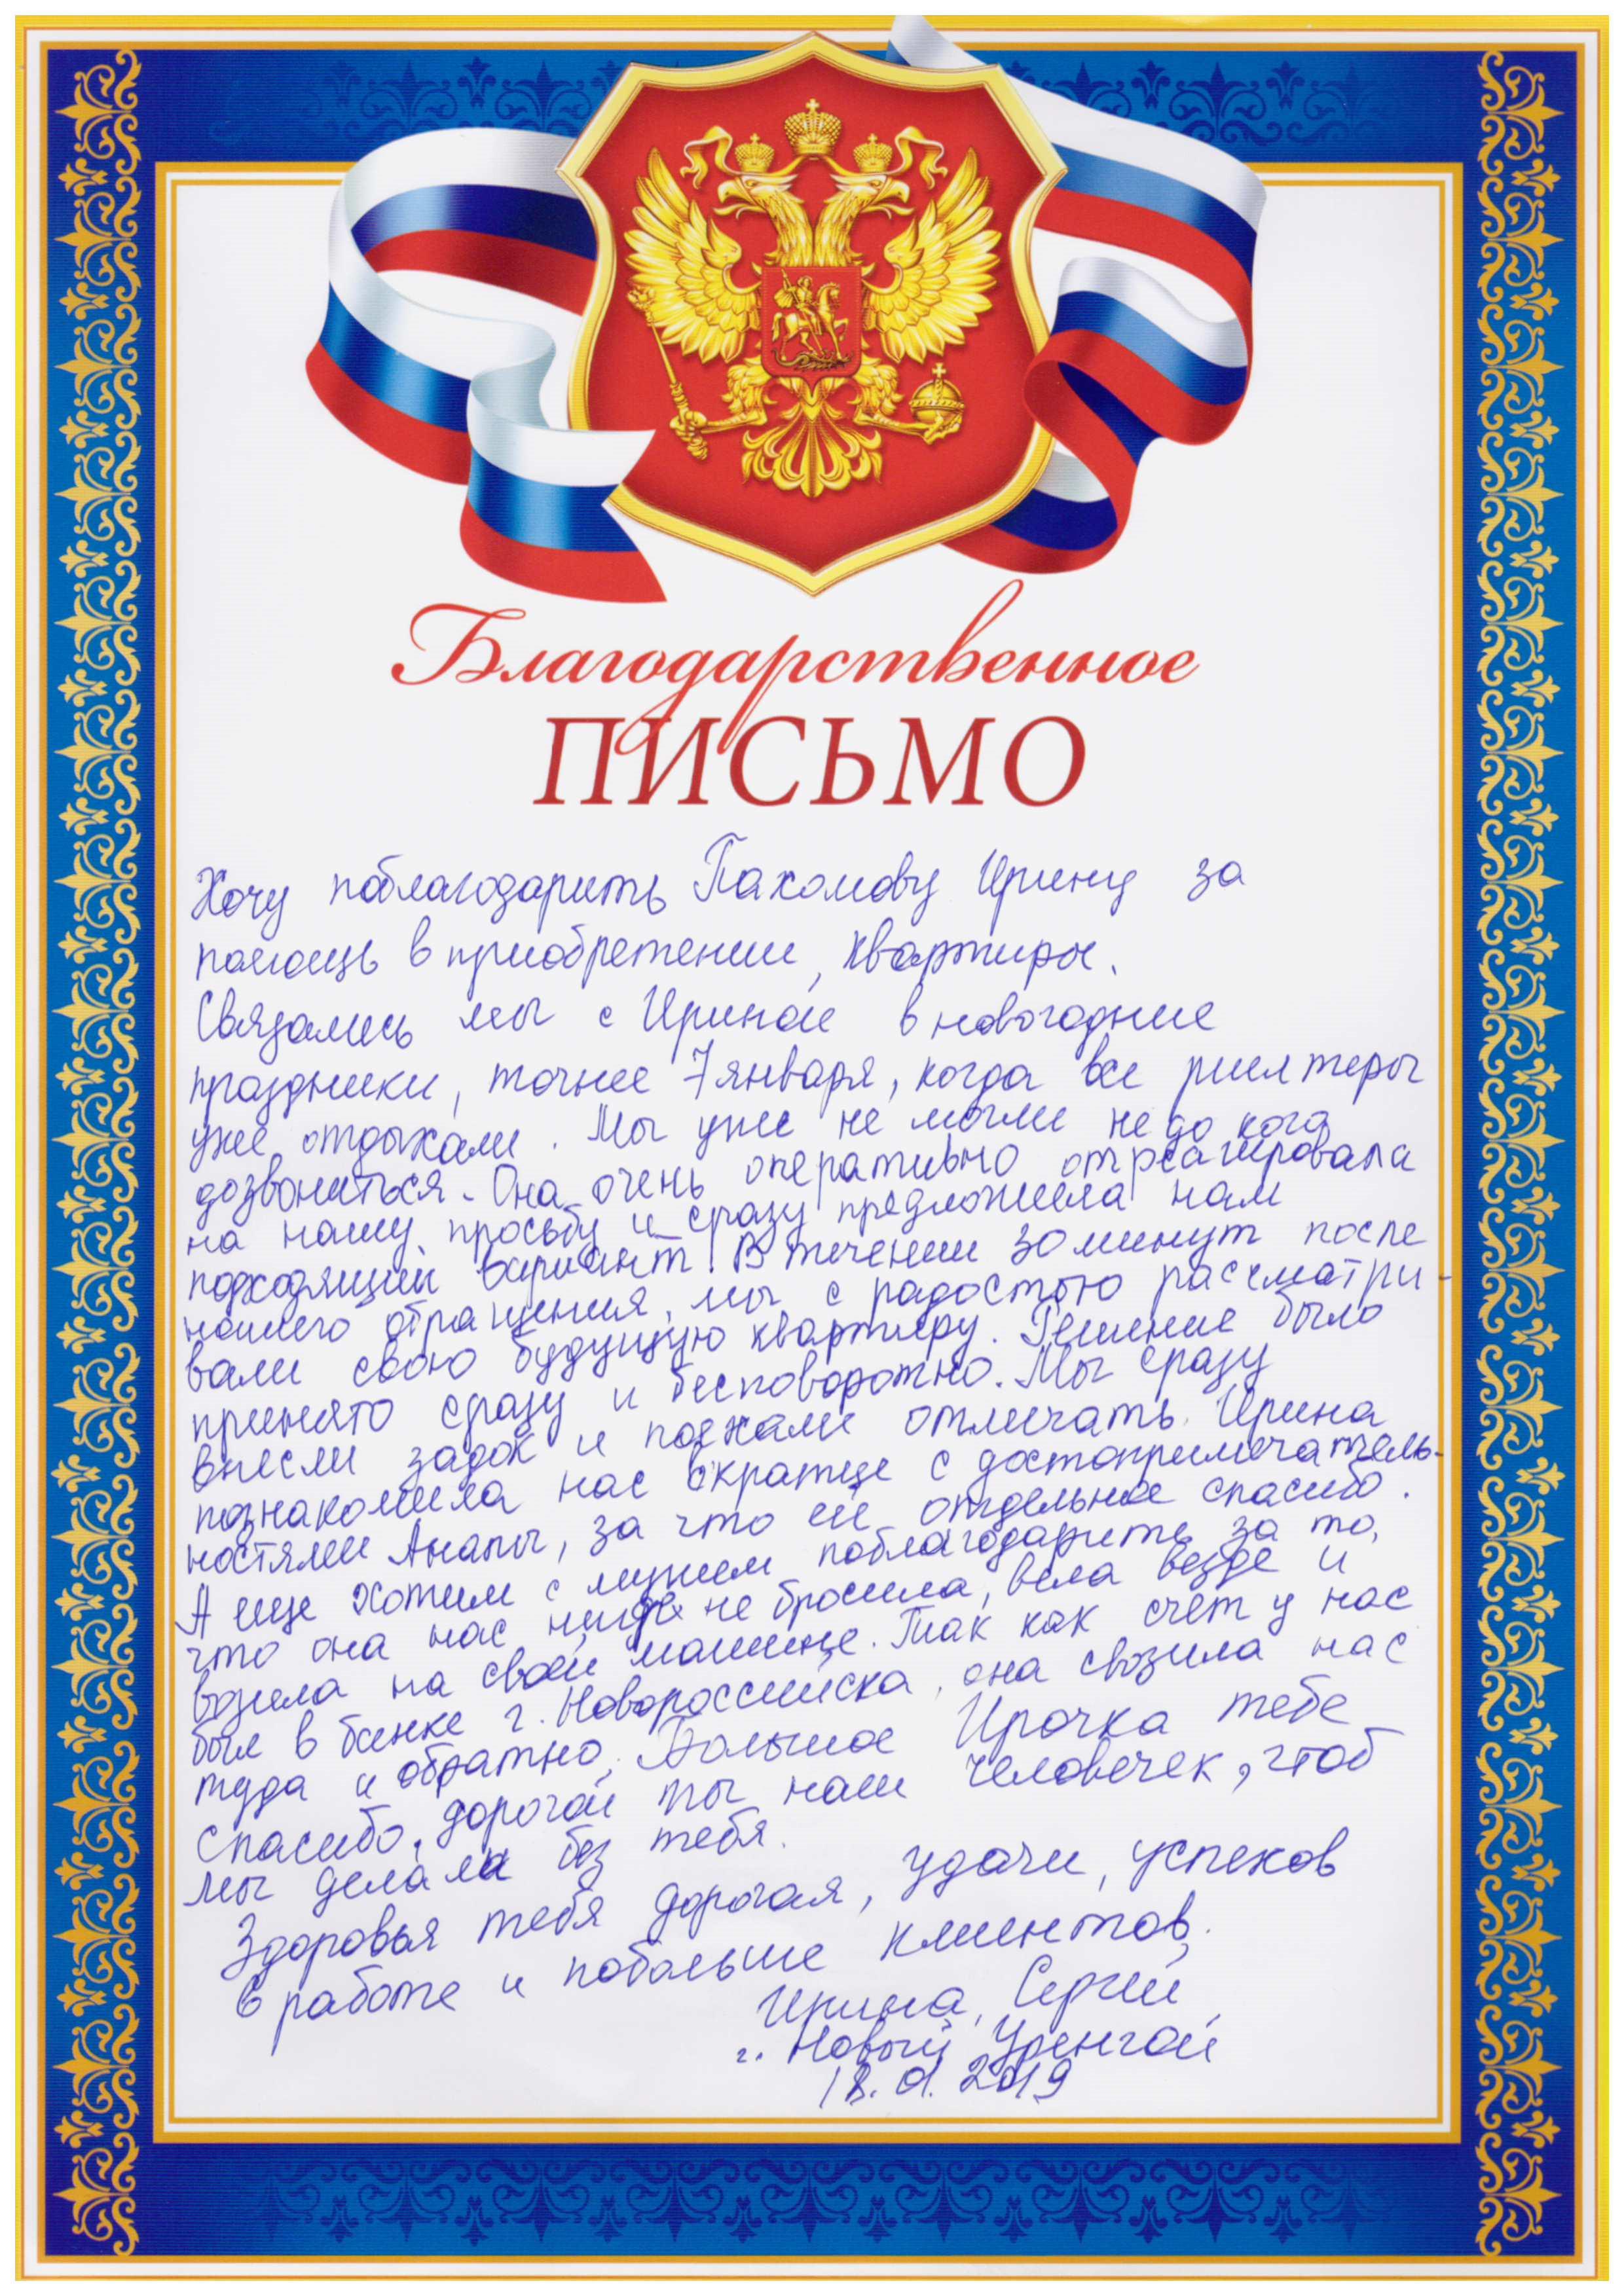 Благодарственное
ПИСЬМО
Хочу поблагодарить Пахомову Ирину за
помощь в приобретении квартиры.
Связались мы с Ириной в новогодние
праздники, точнее 7 января, когда все риелтеры
уже отдыхали. Мы уже не могли не до кого
дозвониться. Она очень оперативно отреагировала
на нашу просьбу и сразу предложила нам
подходящий вариант. В течении 30 минут после
нашего обращения, мы с радостью рассматри-
вали свою будущую квартиру. Решение было
принято сразу и бесповоротно. Мы сразу
внесли задок и поехали отмечать. Ирина
познакомила нас вкратце с достопримечатель-
ностями Анапы, за что ей отдельное спасибо.
А еще хотим с мужем поблагодарить за то,
что она нас нигде не бросила, вела везде и
возила на своей машине. Так как счет у нас
был в банке г. Новороссийска, она свозила нас
туда и обратно. Большое Ирочка тебе
спасибо, дорогой ты наш человечек, чтоб
мы делали без тебя.
Здоровья тебя дорогая, удачи, успехов
в работе и побольше клиентов.
Ирина, Сергей
г. Новый Уренгой
18.01.2019